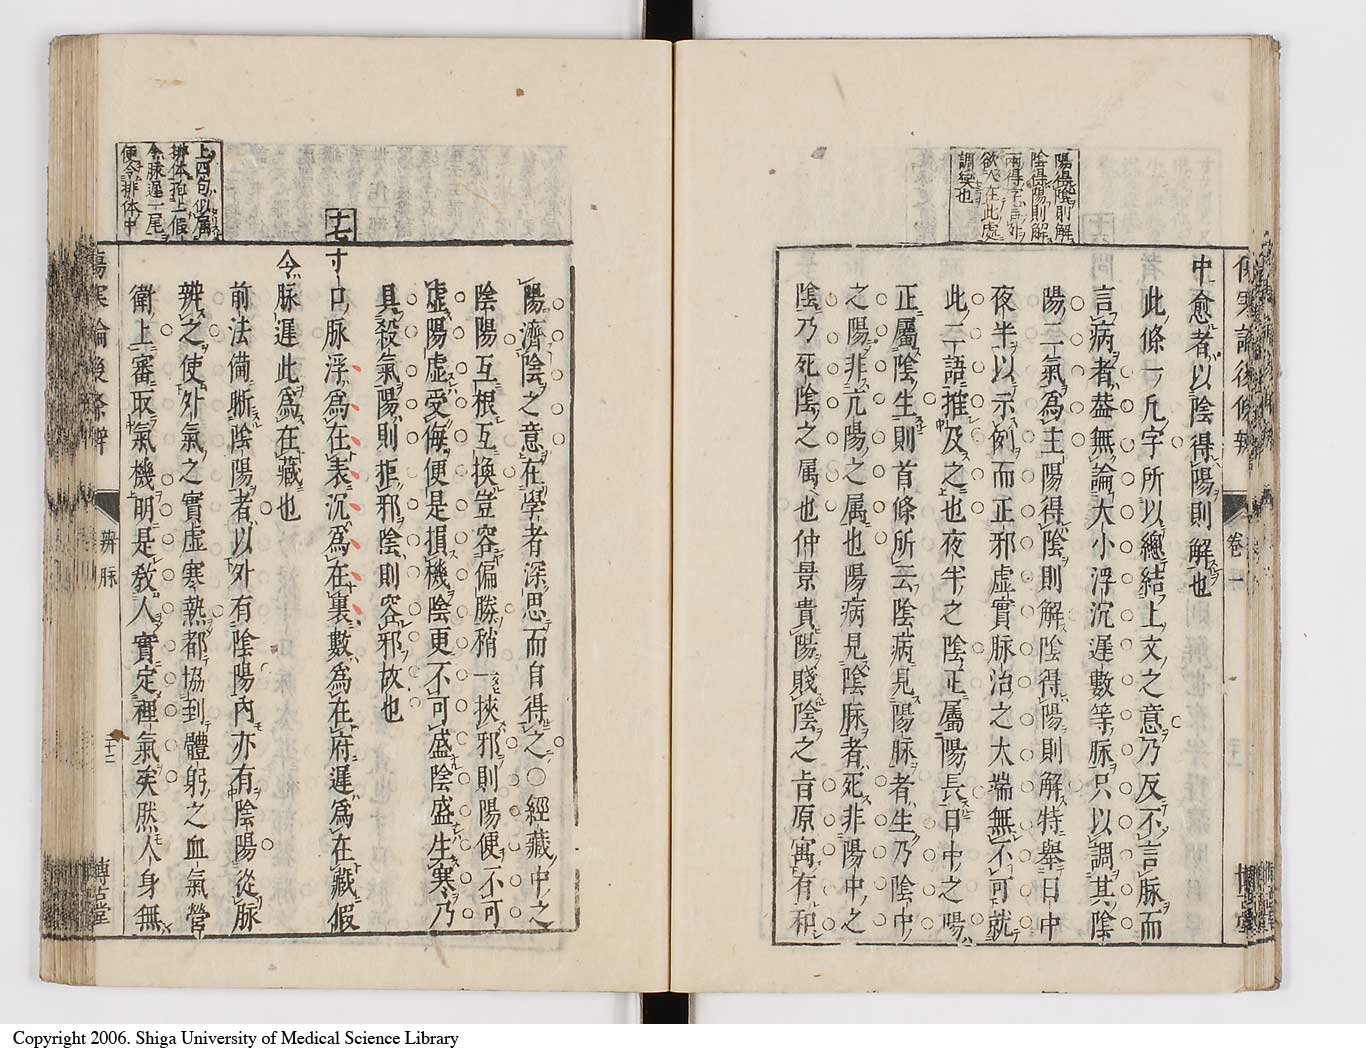 陽得陰則解
陰得陽則解
兩得字言外
欲入在此處
調燮也
中愈者以陰得陽則解也
此條一凡字所以總結上文之意乃反不言脉而
言病者葢無論大小浮沉遲數等脉只以調其陰
陽二氣為主陽得陰則解陰得陽則解特舉日中
夜半以示例而正邪虛實脉治之大端無不可就
此二語推及之也夜半之陰正屬陽長日中之陽
正屬陰生則首條所云陰病見陽脉者生乃陰中
之陽非亢陽之属也陽病見陰脉者死非陽中之
陰乃死陰之属也仲景貴陽賤陰之旨原寓有和
卷一
上四句似屬
排体抱上假
令脉遲一尾
便令排体中
陽濟陰之意在學者深思而自得之○經藏中之
陰陽互根互換豈容偏勝稍一挾邪則陽便不可
虛陽虛受侮便是損機陰更不可盛陰盛生寒乃
具殺氣陽則拒邪陰則容邪故也
十七
寸口脉浮為在表沉為在裏數為在府遲為在藏假
令脉遲此為在藏也
前法備晰陰陽者以外有陰陽內亦有陰陽從脉
辨之使外氣之實虛寒熱都協到體躬之血氣營
衛上審取氣機明是教人實定裡氣矣然人身無
傷寒論後條辨
辨脉
二十二
博古堂
Copyright 2006. Shiga University of Medical Science Library